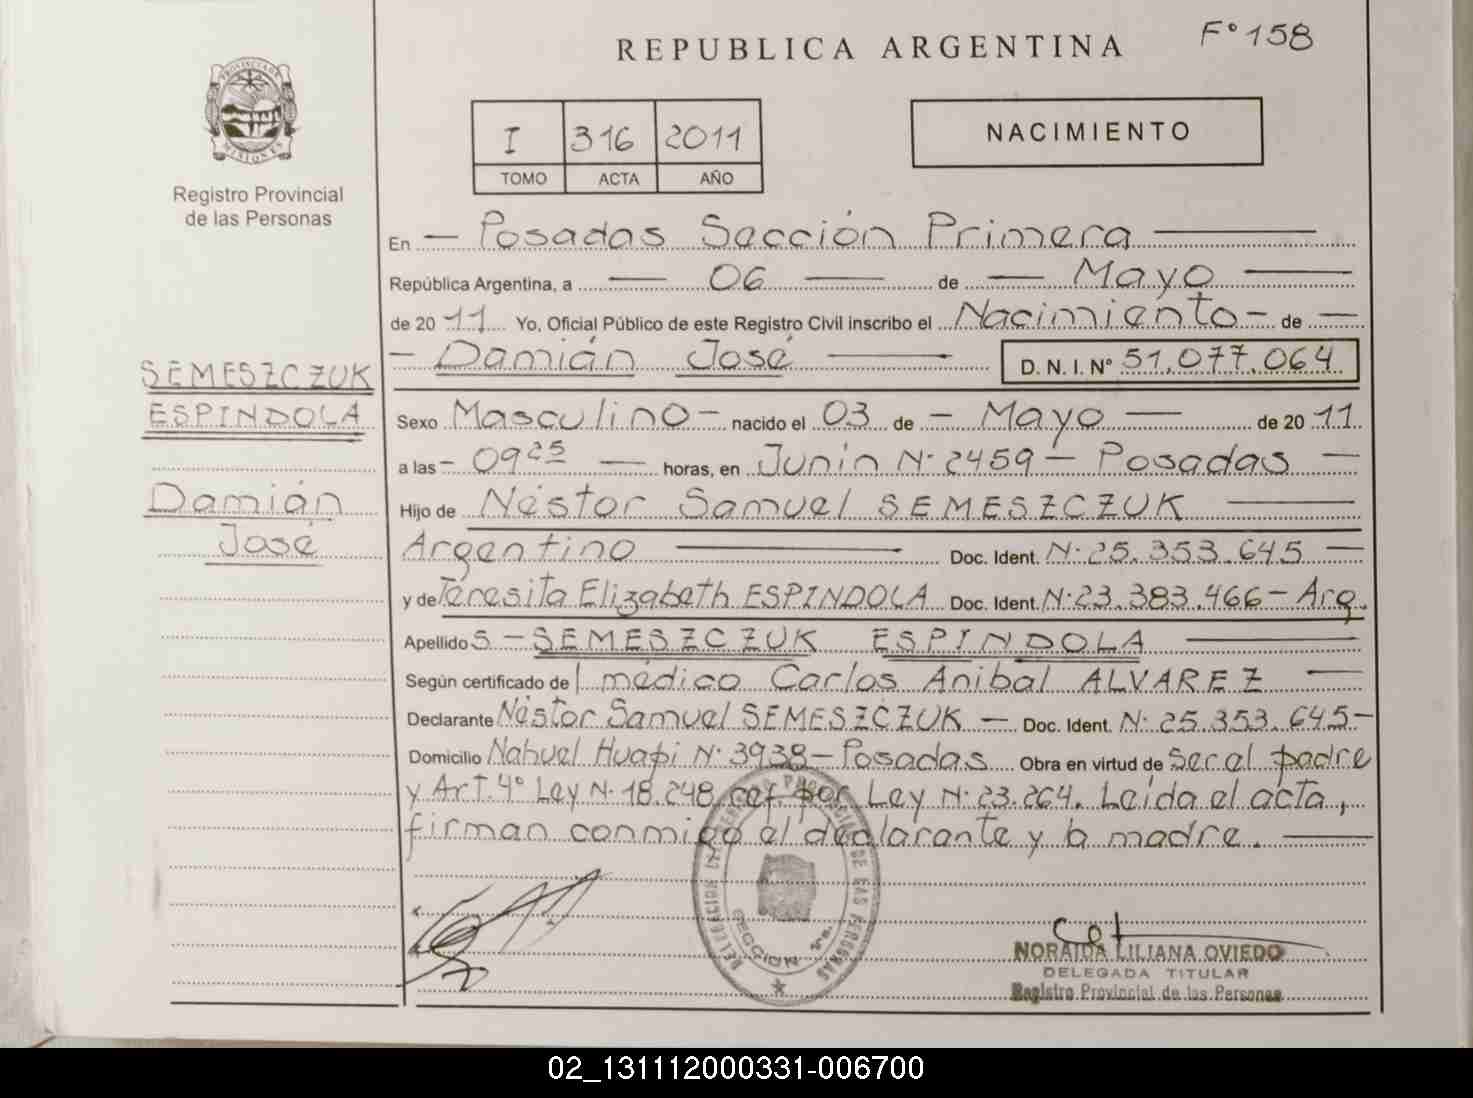 F° 158
REPUBLICA ARGENTINA
PROVINCIA DE
MISIONES
Registro Provincial
de las Personas
I 316 2011
TOMO ACTA AÑO
NACIMIENTO
En — Posadas Sección Primera —
República Argentina, a — 06 — de — Mayo —
de 20 11 Yo, Oficial Público de este Registro Civil inscribo el Nacimiento - de —
— Damián José — D. N. I. N° 51.077.064
SEMESZCZUK
ESPINDOLA
Damián
José
Sexo Masculino - nacido el 03 de - Mayo — de 20 11
a las - 09 25 — horas, en Junín N· 2459 - Posadas —
Hijo de Néstor Samuel SEMESZCZUK —
Argentino — Doc. Ident. N· 25.353.645 —
y de Teresita Elizabeth ESPINDOLA Doc. Ident. N· 23.383.466 - Arg.
Apellido s - SEMESZCZUK ESPINDOLA —
Según certificado de l médico Carlos Anibal ALVAREZ —
Declarante Néstor Samuel SEMESZCZUK — Doc. Ident. N· 25.353.645 -
Domicilio Nahuel Huapi N· 3938 - Posadas Obra en virtud de ser el padre
y Art. 4° Ley N· 18.248 ref. por Ley N· 23.264. Leída el acta,
firman conmigo el declarante y la madre. —
SECCION 1ra.
NORAIDA LILIANA OVIEDO
DELEGADA TITULAR
Registro Provincial de las Personas
02_131112000331-006700